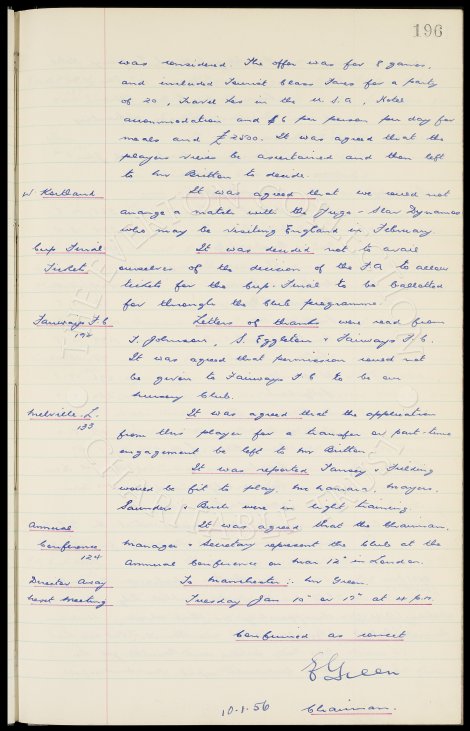 196
was considered The offer was for 8 games,
and included Tourist Class Fares for a party
of 20, Travel in the U.S.A, Hotel
accommodation and $6 per person per day for
meals and £2500. It was agreed that the
players views be ascertained and then left
to Mr Britton to decide.
W. It was agreed that we could not
arrange a match with the Yugo-Slav Dynamos
who may be visiting England in February.
Cup Final It was decided not to avail
Tickets ourselves of the decision of the FA to allow
tickets for the Cup-Final to be ballotted
for through the Club programme.
Fairways F.C Letters of thanks were read from
192 T. Johnson, S. Eggleston & Fairways F/C.
It was agreed that permission could not
be given to Fairways F.C to be our
nursery Club.
Melville. L. It was agreed that the application
133 from this player for a transfer or part-time
engagement be left to Mr Britton
It was reported Tansey & Fielding
would be fit to play. McNamara, Mayers,
Saunders & Birch were in light training.
Annual It was agreed that the Chairman,
Conference Manager & Secretary represent the Club at the
124 Annual Conference on Mar 12th in London.
Director Away To Manchester :- Mr Green.
Next Meeting Tuesday Jan 10th or 17th at 4 p.m.
Confirmed as correct
E Green
10.1.56 Chairman.
THE EVERTON COLLECTION
CHARITABLE TRUST